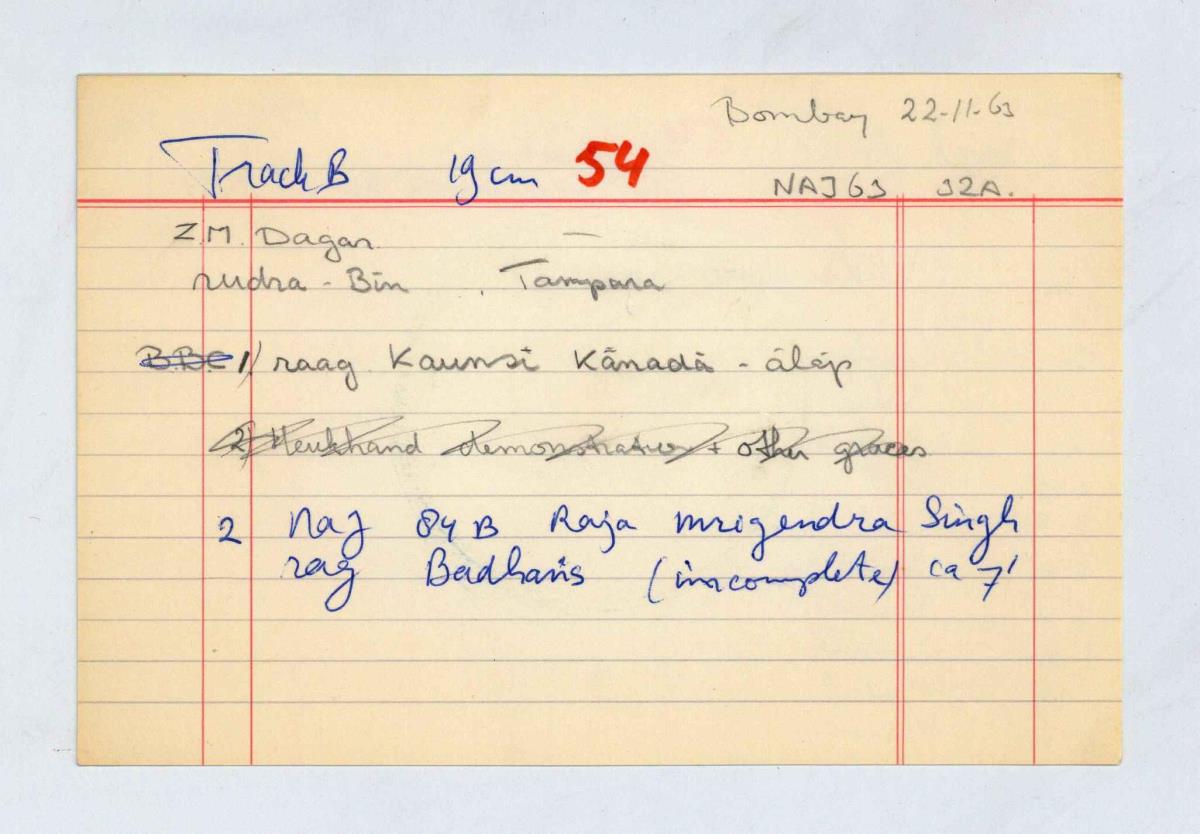 Bombay 22-11-63
Track B 19 cm 54
NAJ 63 32A.
Z.M. Dagar —
rudra - Bīn , Tampura
B.B.C 1) raag Kaunsī Kānadā - ālāp
2) demonstration + other graces
2 Naj 84 B Raja Mrigendra Singh
rag Badhans (incomplete) ca 7'